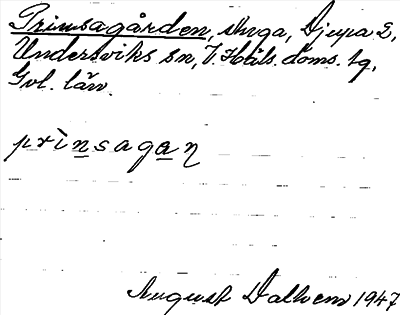 Prinsagården, stuga, Djupa 2,
Undersviks sn, V. Häls. doms. tg,
Gvl. län.
prìnsagaꞑ
August Dalhem 1947